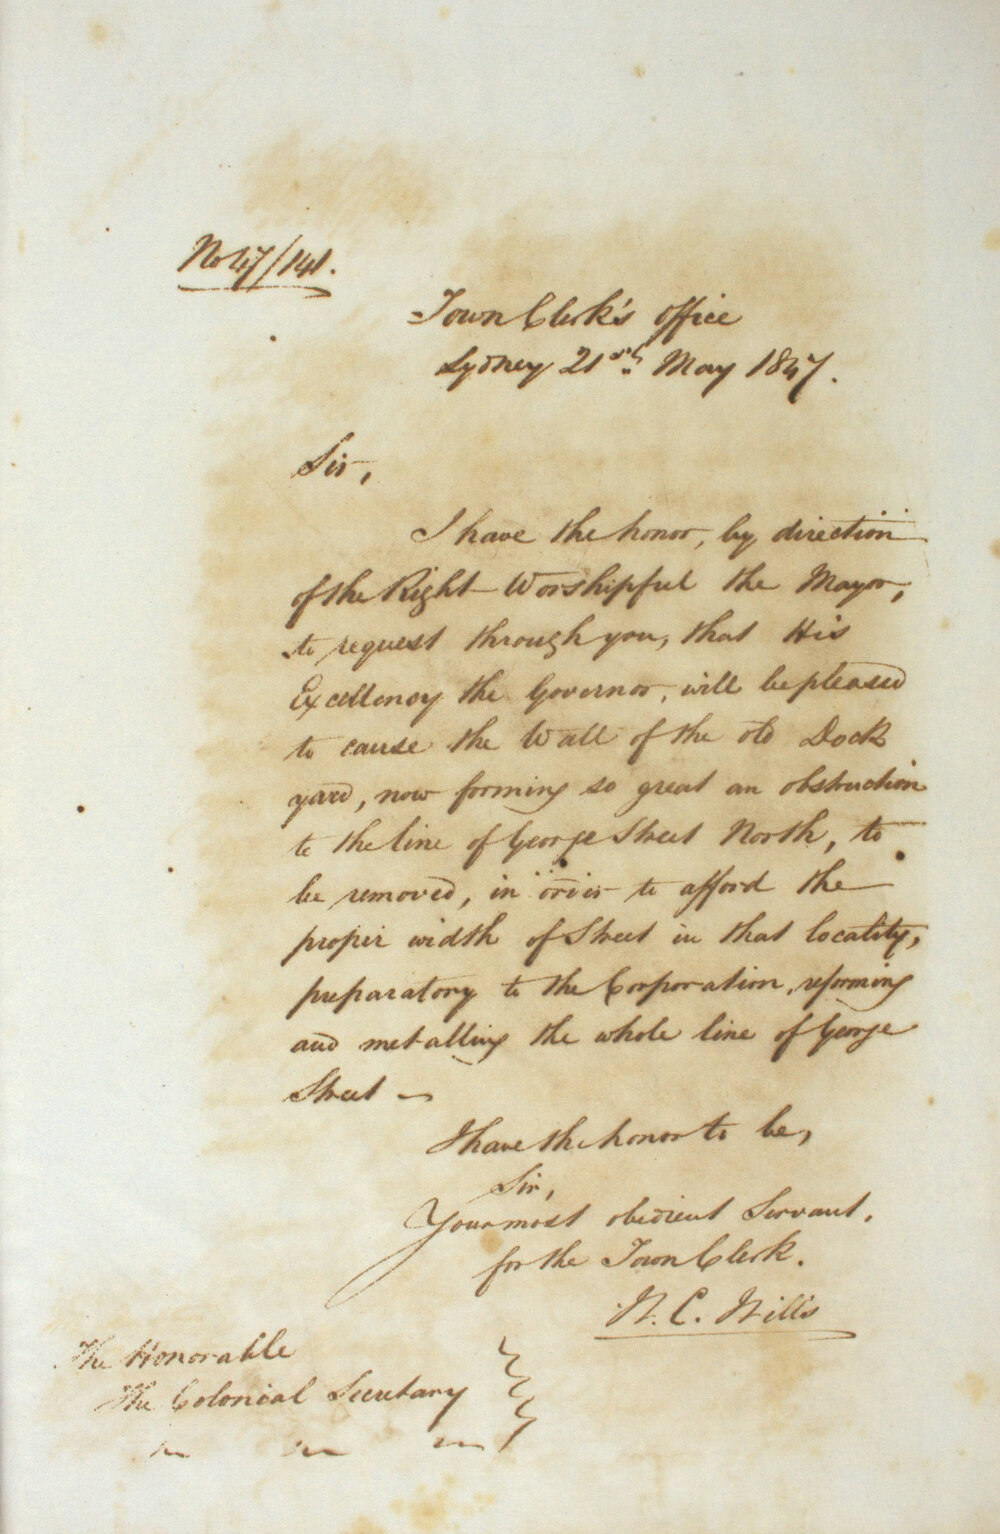 No 47/141.
Town Clerk's Office
Sydney 21st May 1847.
Sir,
I have the honor, by direction
of the Right Worshipful the Mayor,
to request through you, that His
Excellency the Governor, will be pleased
to cause the Wall of the old Dock
yard, now forming so great an obstruction
to the line of George Street North, to
be removed, in order to afford the
proper width of Street in that locality,
preparatory to the Corporation, reforming
and metalling the whole line of George
Street —
I have the honor to be,
Sir,
Your most obedient Servant.
for the Town Clerk.
W. C. Wills
The Honorable
The Colonial Secretary